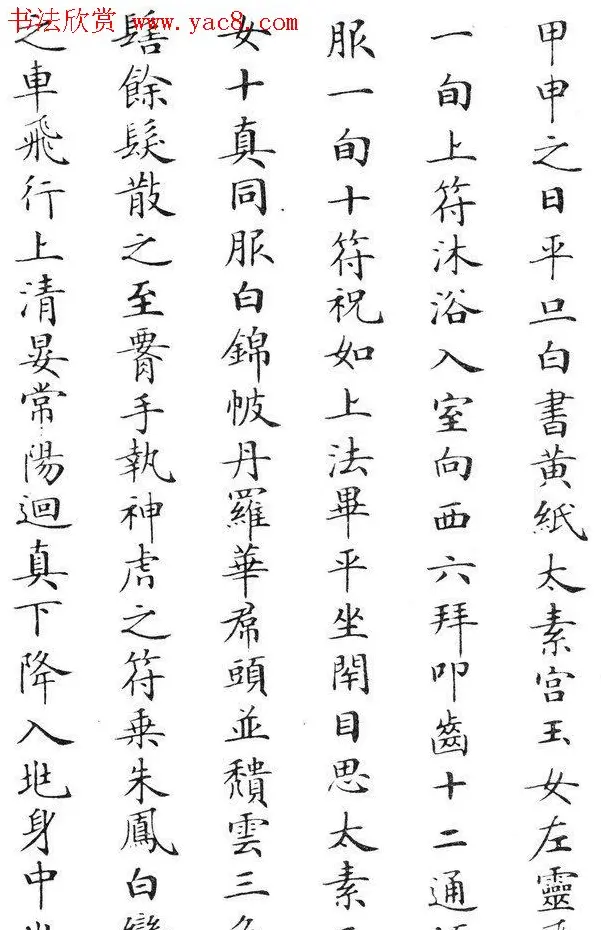 书法欣赏 www.yac8.com
甲申之日平旦白書黄紙太素宫玉女左靈
一旬上符沐浴入室向西六拜叩齒十二通
服一旬十符祝如上法畢平坐閇目思太素
女十真同服白錦帔丹羅華帬頭並頹雲三
髻餘髮散之至署手執神虎之符乗朱鳳白
之車飛行上清晏常陽迴真下降入兆身中